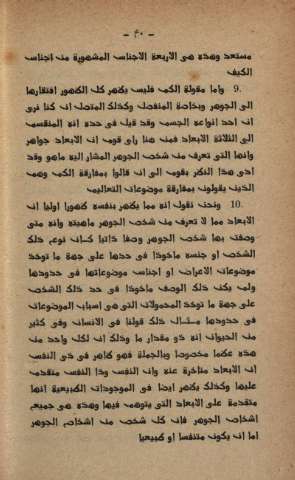 — ٤٠ —
مستعد وهذه هى الاربعة الاجناس المشهورة من اجناس
الكيف
9. واما مقولة الكم فليس يظهر كل الظهور افتقارها
الى الجوهر وبخاصة المنفصل وكذلك المتصل اذ كنا نرى
ان احد انواعه الجسم وقد قيل فى حده انه المنقسم
الى الثلاثة الابعاد فمن هنا رأى قوم ان الابعاد جواهر
وانها التى تعرف من شخص الجوهر المشار اليه ماهو وقد
ادى هذا النظر بقوم الى ان قالوا بمفارقة الكم وهم
الذين يقولون بمفارقة موضوعات التعاليم
10. ونحن نقول انه مما يظهر بنفسه ظهورا اوليا ان
الابعاد مما لا تعرف من شخص الجوهر ماهيته وانه متى
وصفت بها شخص الجوهر وصفا ذاتيا كان نوع ذلك
الشخص او جنسه ماخوذا فى حدها على جهة ما توخذ
موضوعات الاعراض او اجناس موضوعاتها فى حدودها
ولم يكن ذلك الوصف ماخوذا فى حد ذلك الشخص
على جهة ما توخذ المحمولات التى هى اسباب الموضوعات
فى حدودها مثال ذلك قولنا فى الانسان وفى كثير
من الحيوان انه ذو مقدار ما وذلك ان لكل واحد من
هذه عظما مخصوصا وبالجملة فهو ظاهر فى ذى النفس
ان الابعاد متاخرة عنه وان النفس وذا النفس متقدمة
عليها وكذلك يظهر ايضا فى الموجودات الطبيعية انها
متقدمة على الابعاد التى يتوهم فيها وهذه هى جميع
اشخاص الجوهر فان كل شخص من اشخاص الجوهر
اما ان يكون متنفسا او طبيعيا